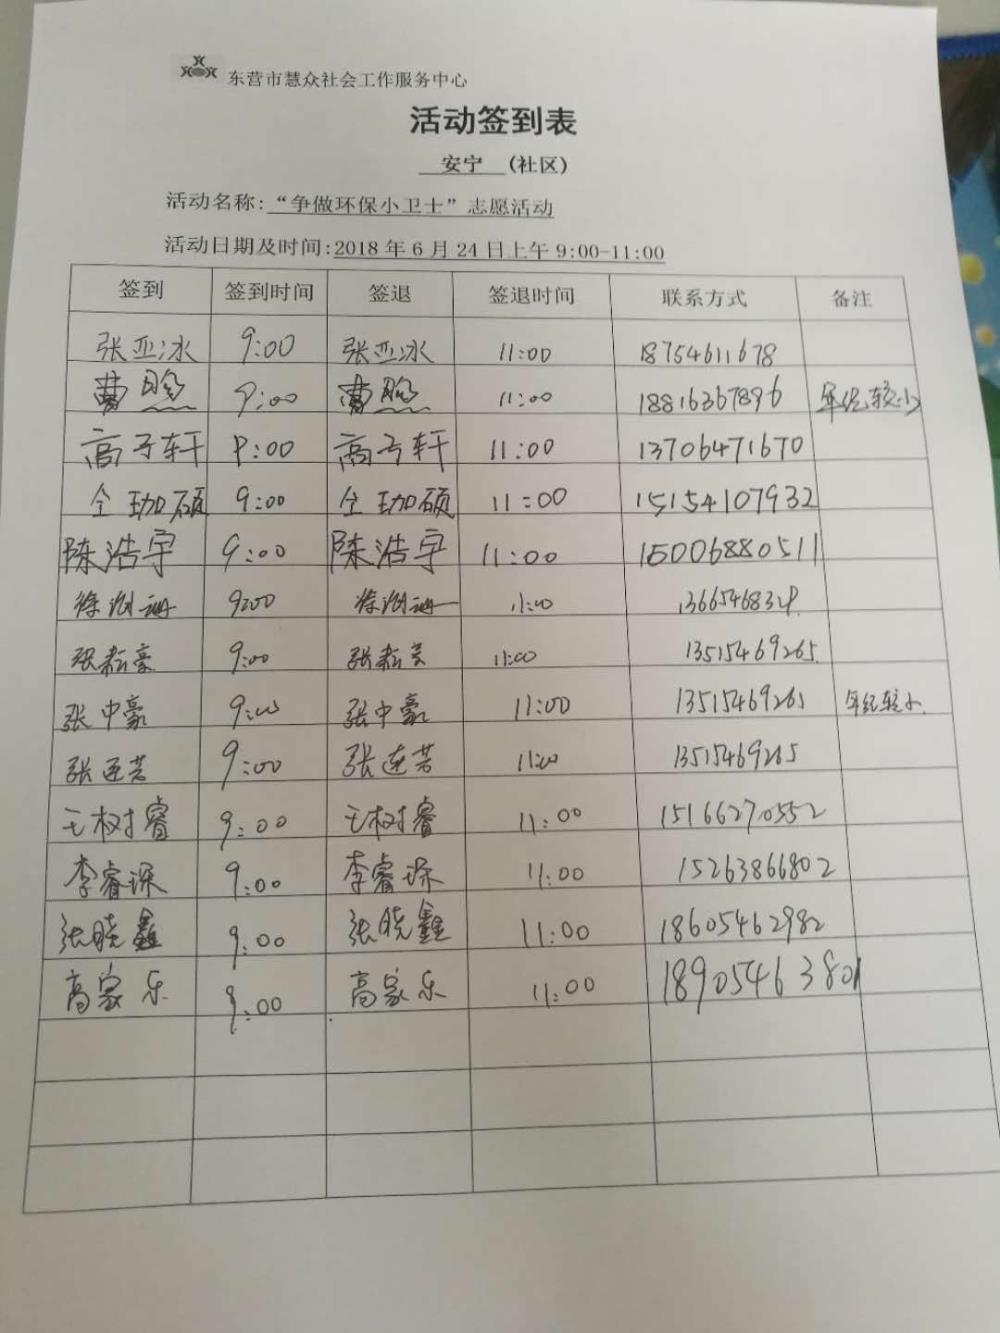 东营市慧众社会工作服务中心
活动签到表
安宁 (社区)
活动名称:“争做环保小卫士”志愿活动
活动日期及时间:2018 年 6 月 24 日上午 9:00-11:00
签到 签到时间 签退 签退时间 联系方式 备注
张亚冰 9:00 张亚冰 11:00 18754611678
曹 9:00 曹 11:00 18816367896 年纪较小
高子轩 9:00 高子轩 11:00 13706471670
仝珈硕 9:00 仝珈硕 11:00 15154107932
陈浩宇 9:00 陈浩宇 11:00 15006880511
徐 9:00 徐 11:00
张耘豪 9:00 张耘 11:00 13515469265
张中豪 9:00 张中豪 11:00 13515469265 年纪较小
张连芳 9:00 张连芳 11:00 13515469265
王树睿 9:00 王树睿 11:00 15166270552
李睿琛 9:00 李睿琛 11:00 15263866802
张晓鑫 9:00 张晓鑫 11:00 18605462982
高家乐 9:00 高家乐 11:00 18905463801